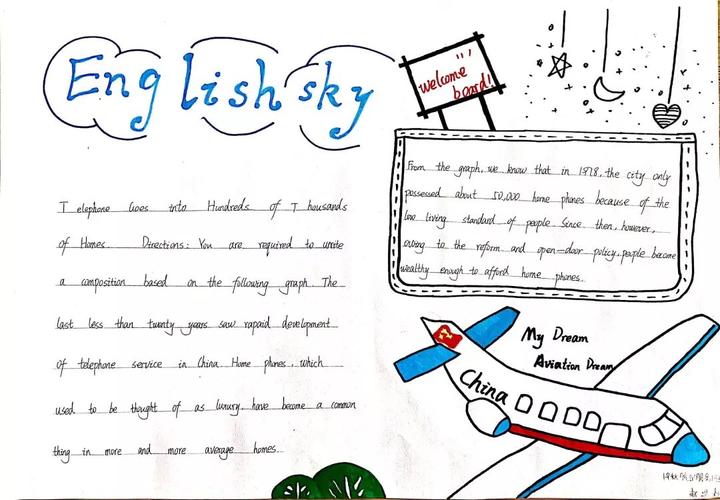 English sky
welcome
board!
Telephone Goes into Hundreds of Thousands
of Homes. Directions: You are required to write
a composition based on the following graph. The
last less than twenty years saw rapaid development
of telephone service in China. Home phones, which
used to be thought of as luxury, have become a common
thing in more and more average homes.
From the graph, we know that in 1978, the city only
possessed about 50,000 home phones because of the
low living standard of people Since then, however,
owing to the reform and open-door policy, people become
wealthy enough to afford home phones.
My Dream
Aviation Dream
China